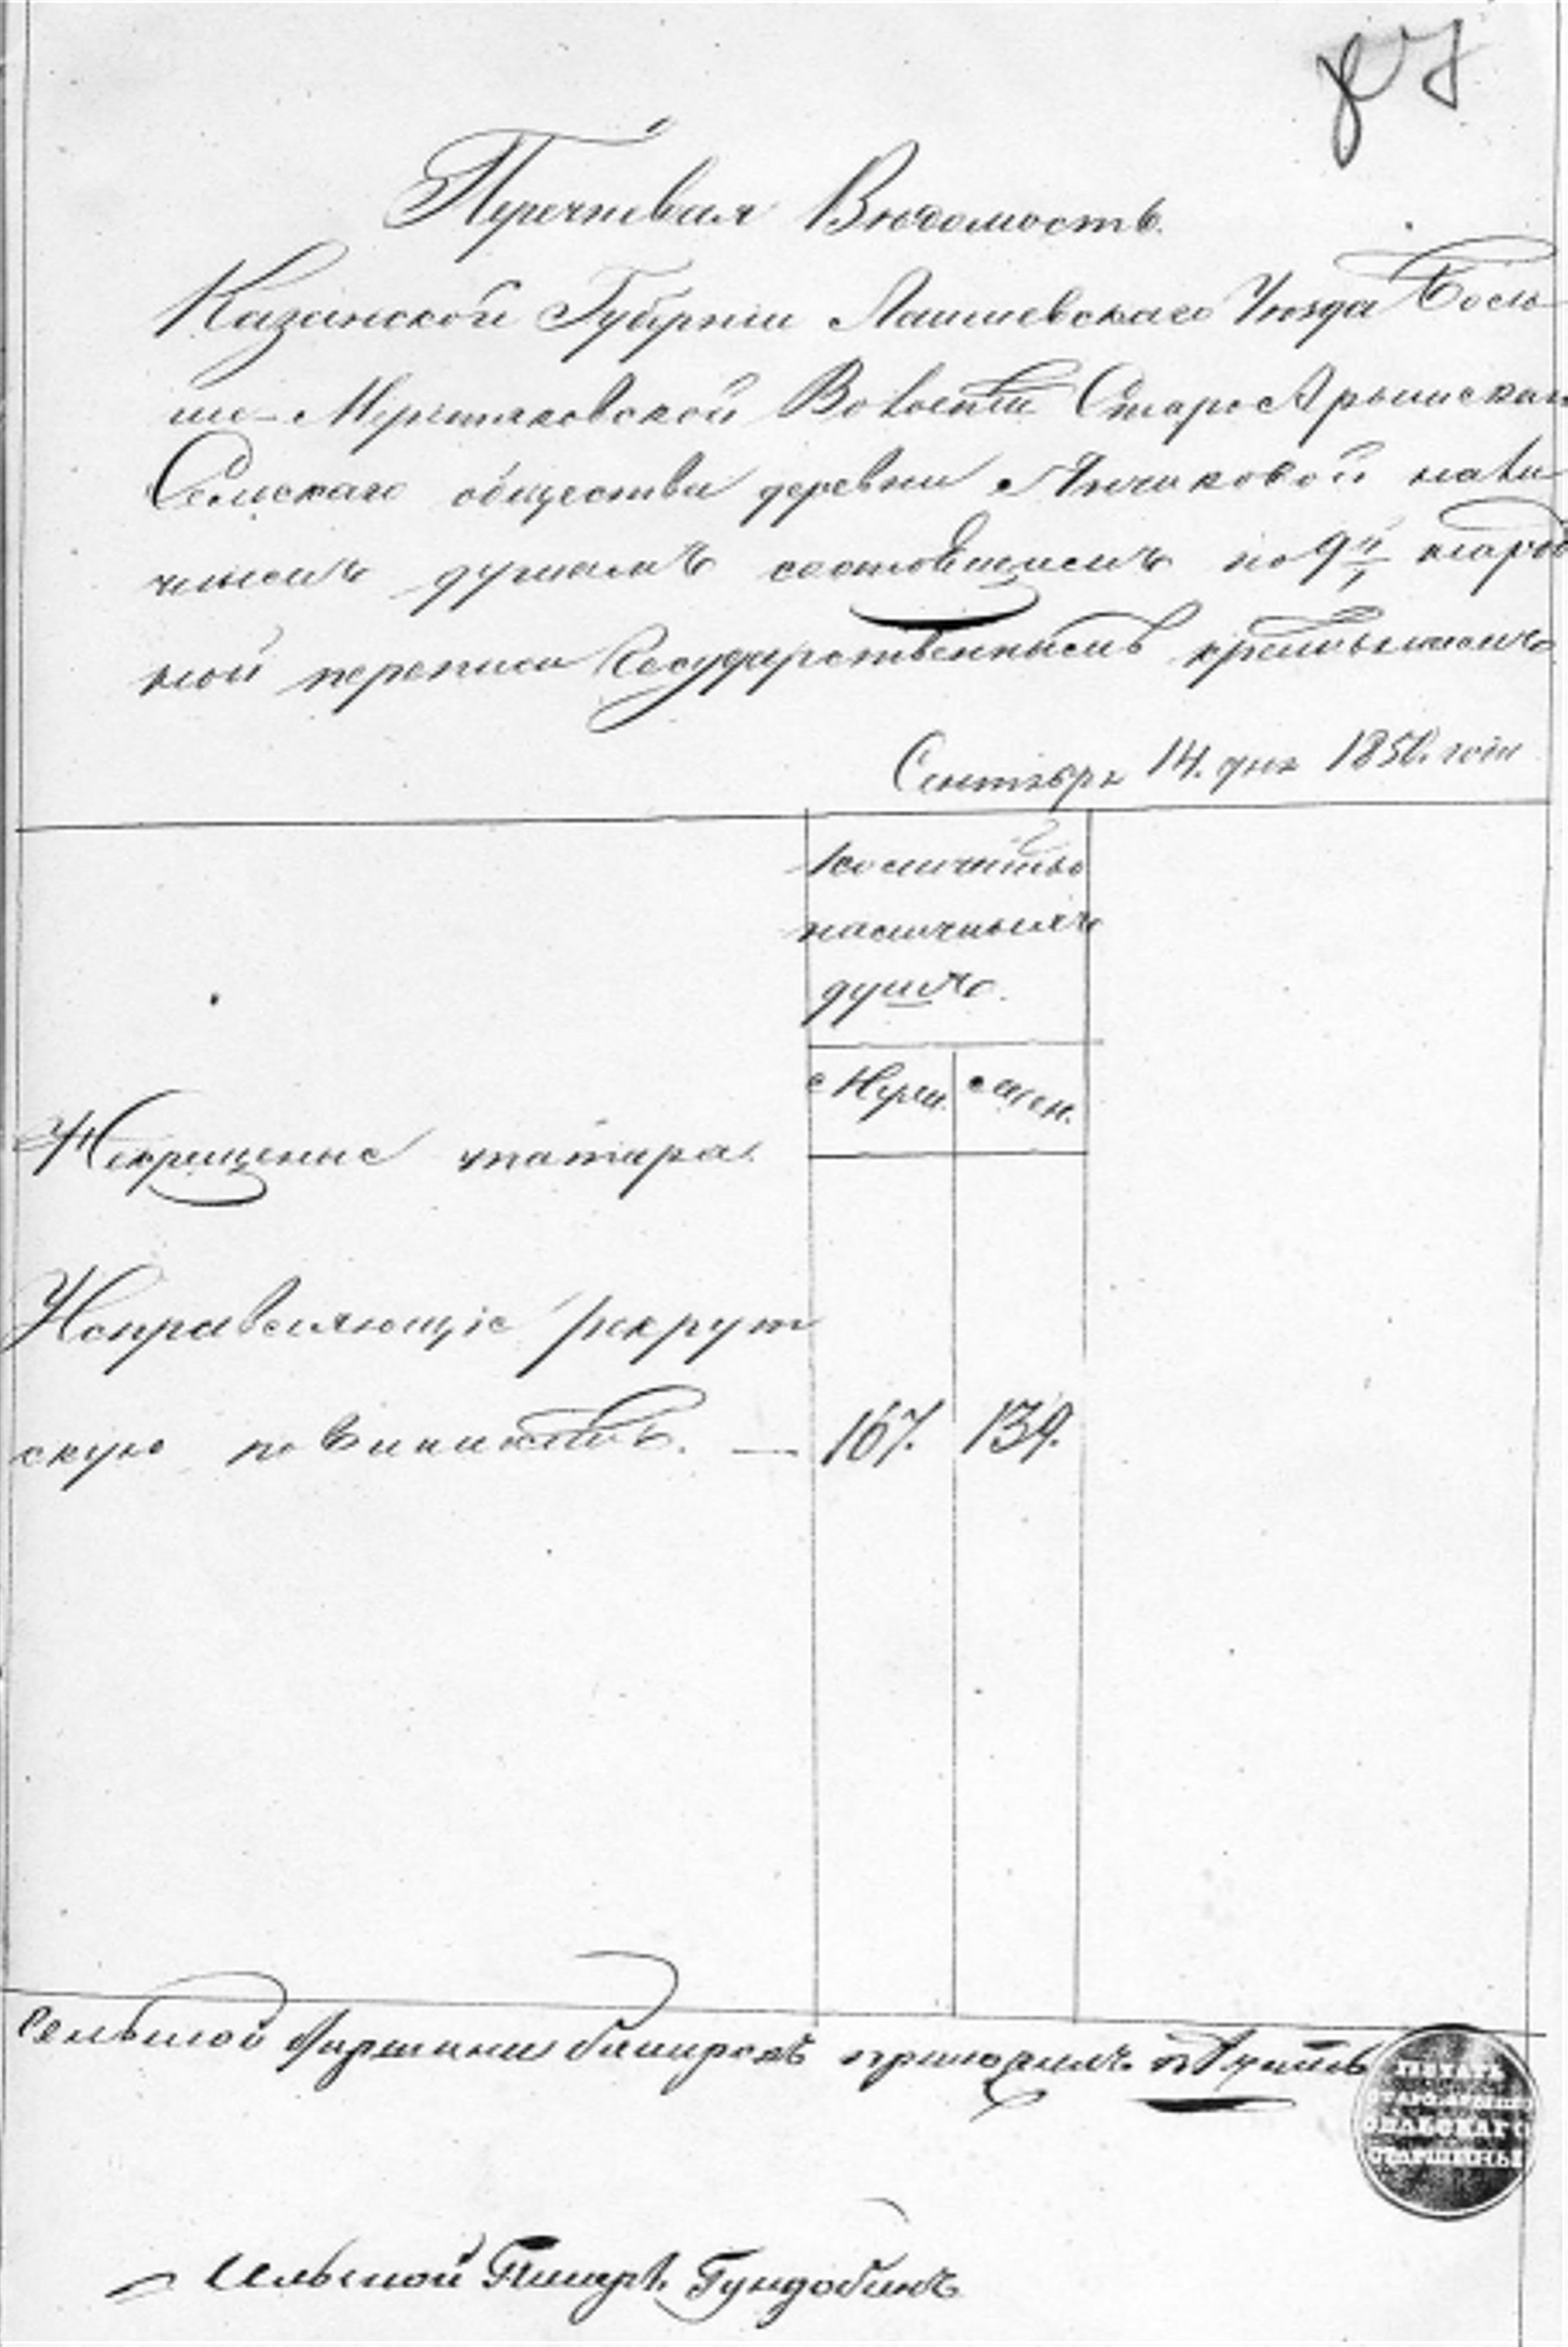 87
Перечневая Вѣдомость.
Казанской Губерніи Лаишевскаго Уѣзда Боль
ше-Меретяковской Волости СтароАрышскаго
Сельскаго общества деревни Янчиковой налич
нымъ душамъ состоящимъ по 9й народ
ной переписи Государственнымъ крестьянамъ
Сентября 14. дня 1850. года
Количество
наличныхъ
душъ.
Муж. Жен.
Некрещеные татара.
Исправляющіе рекрут
скую повинность. — 167. 139.
Сельской Старшина приложилъ печать
ПЕЧАТЬ
СЕЛЬСКАГО
СТАРШИНЫ
Сельской Писарь Гундобинъ